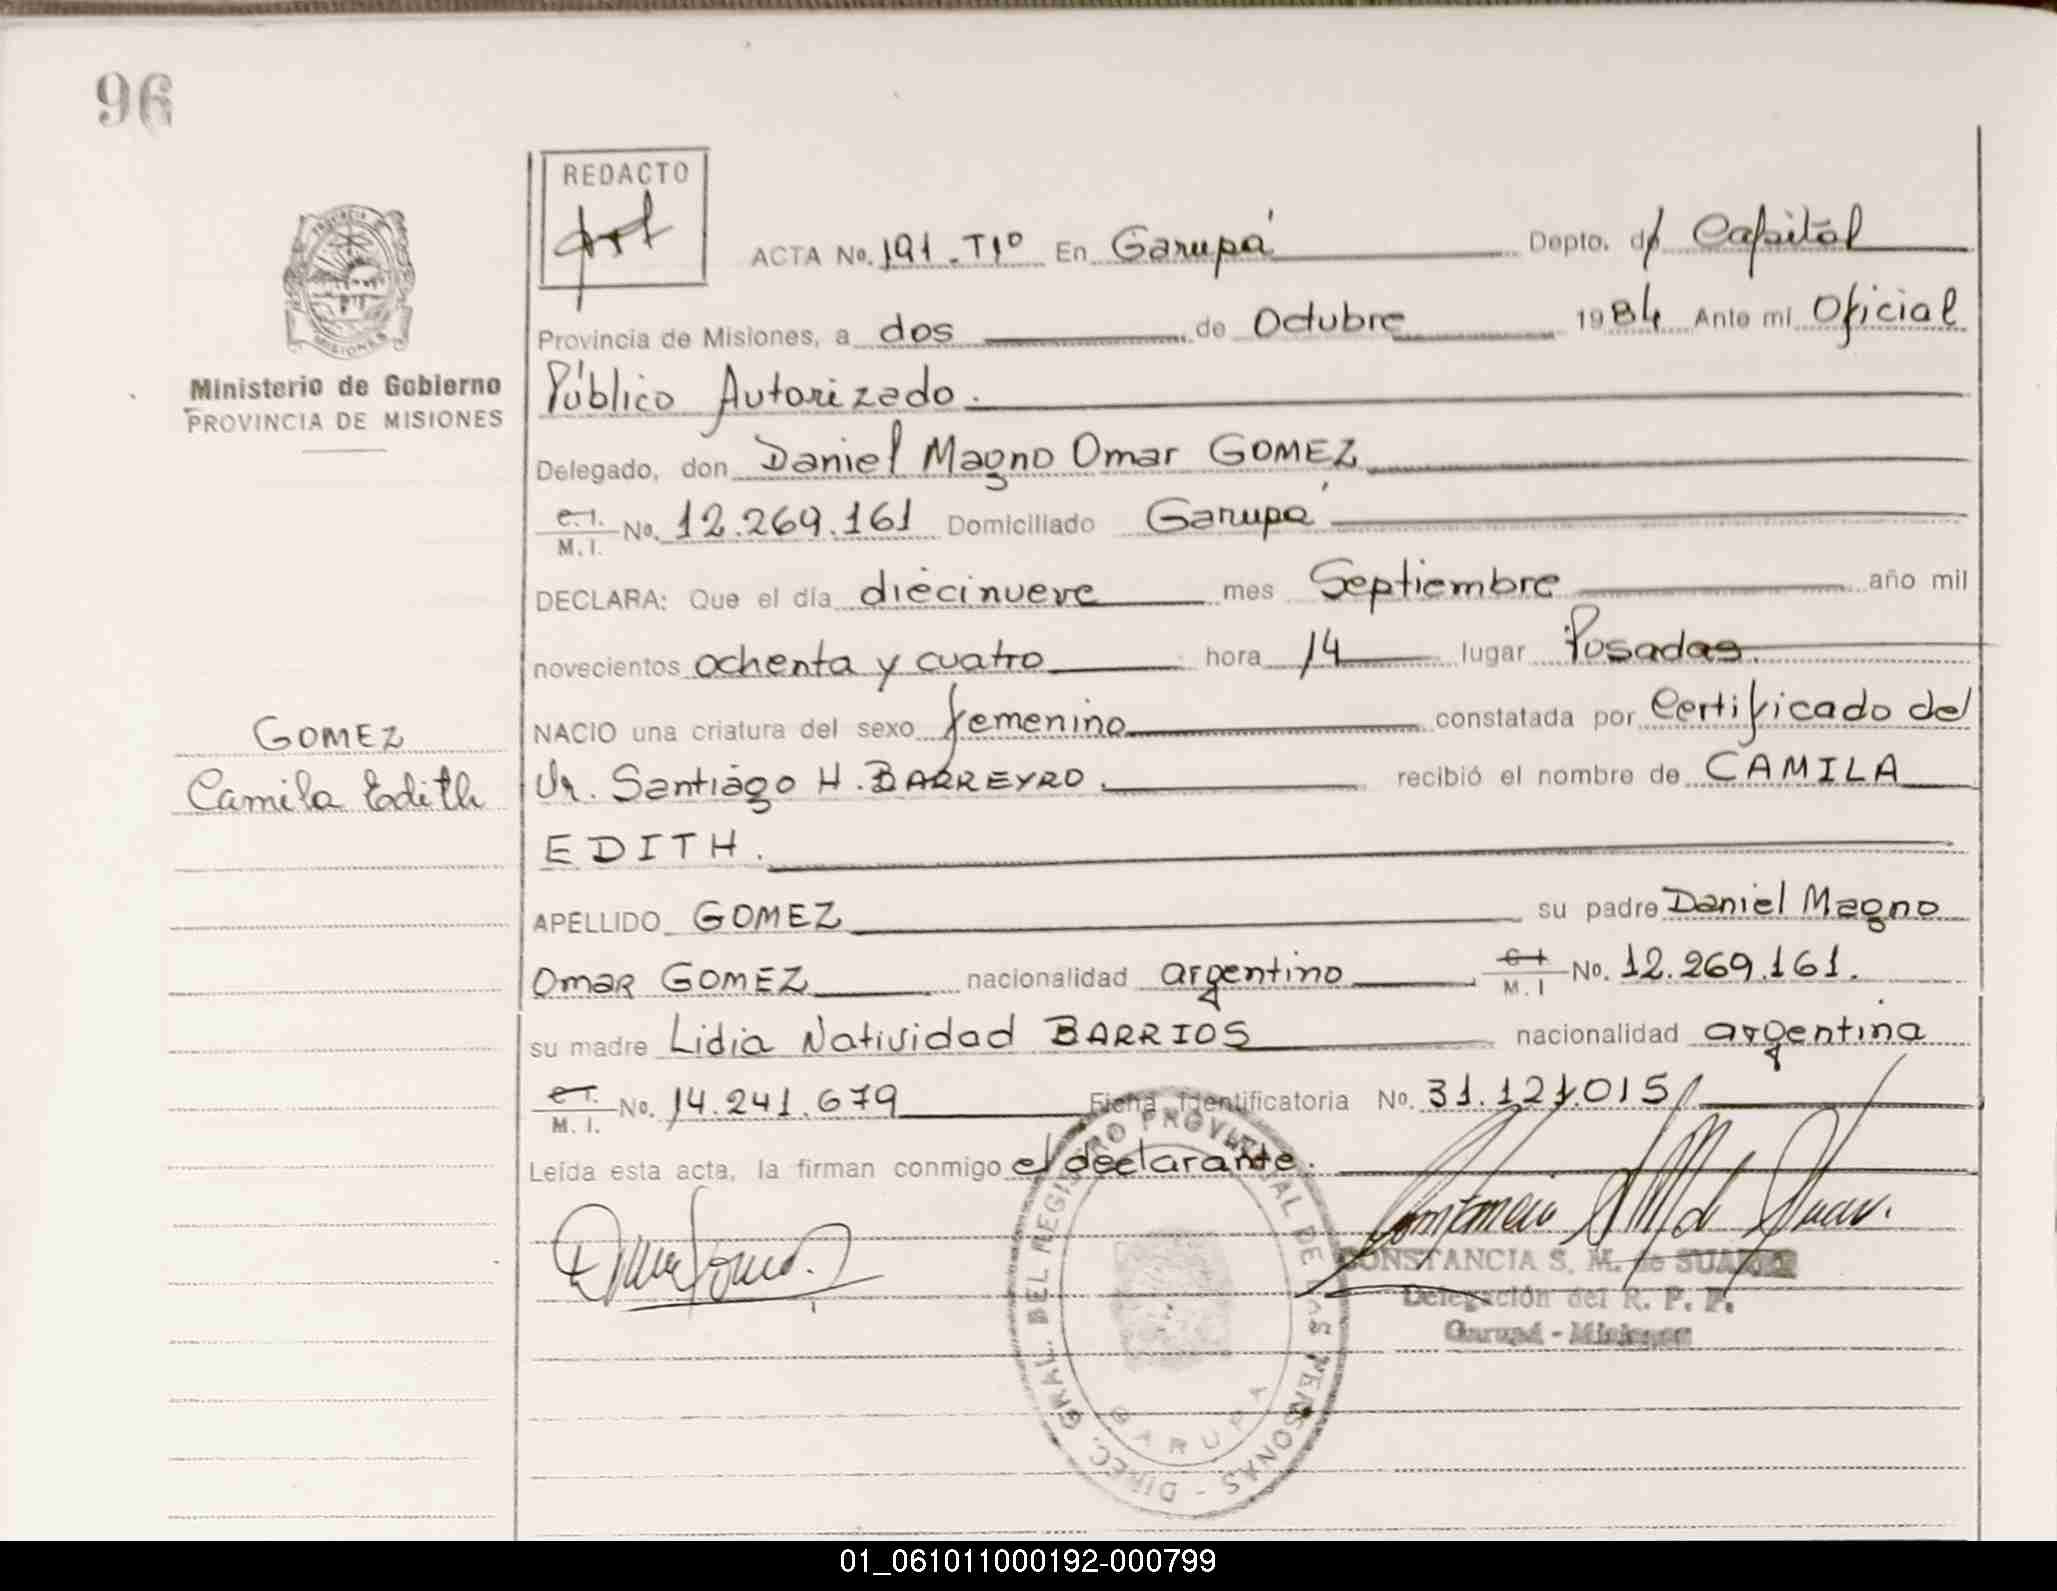 96
REDACTO
ACTA No. 191 - T1º En Garupá Depto. d/ Capital
Provincia de Misiones, a dos de Octubre 1984 Ante mi Oficial
Público Autorizado.
Ministerio de Gobierno
PROVINCIA DE MISIONES
Delegado, don Daniel Magno Omar GOMEZ
C.I.
M.I. No. 12.269.161 Domiciliado Garupá
DECLARA: Que el día diecinueve mes Septiembre año mil
novecientos ochenta y cuatro hora 14 lugar Posadas
NACIO una criatura del sexo femenino constatada por Certificado del
Dr. Santiago H. BARREYRO. recibió el nombre de CAMILA
EDITH.
GOMEZ
Camila Edith
APELLIDO GOMEZ su padre Daniel Magno
Omar GOMEZ nacionalidad argentino C.I. M.I No. 12.269.161.
su madre Lidia Natividad BARRIOS nacionalidad argentina
C.I.
M.I. No. 14.241.679 Ficha Identificatoria No. 31.121.015
Leída esta acta, la firman conmigo el declarante.
CONSTANCIA S. M. de SUAREZ
Delegación del R. P. P.
Garupá - Misiones
DIREC. GRAL. DEL REGISTRO PROVINCIAL DE LAS PERSONAS -
GARUPA
PROVINCIA
MISIONES
01_061011000192-000799